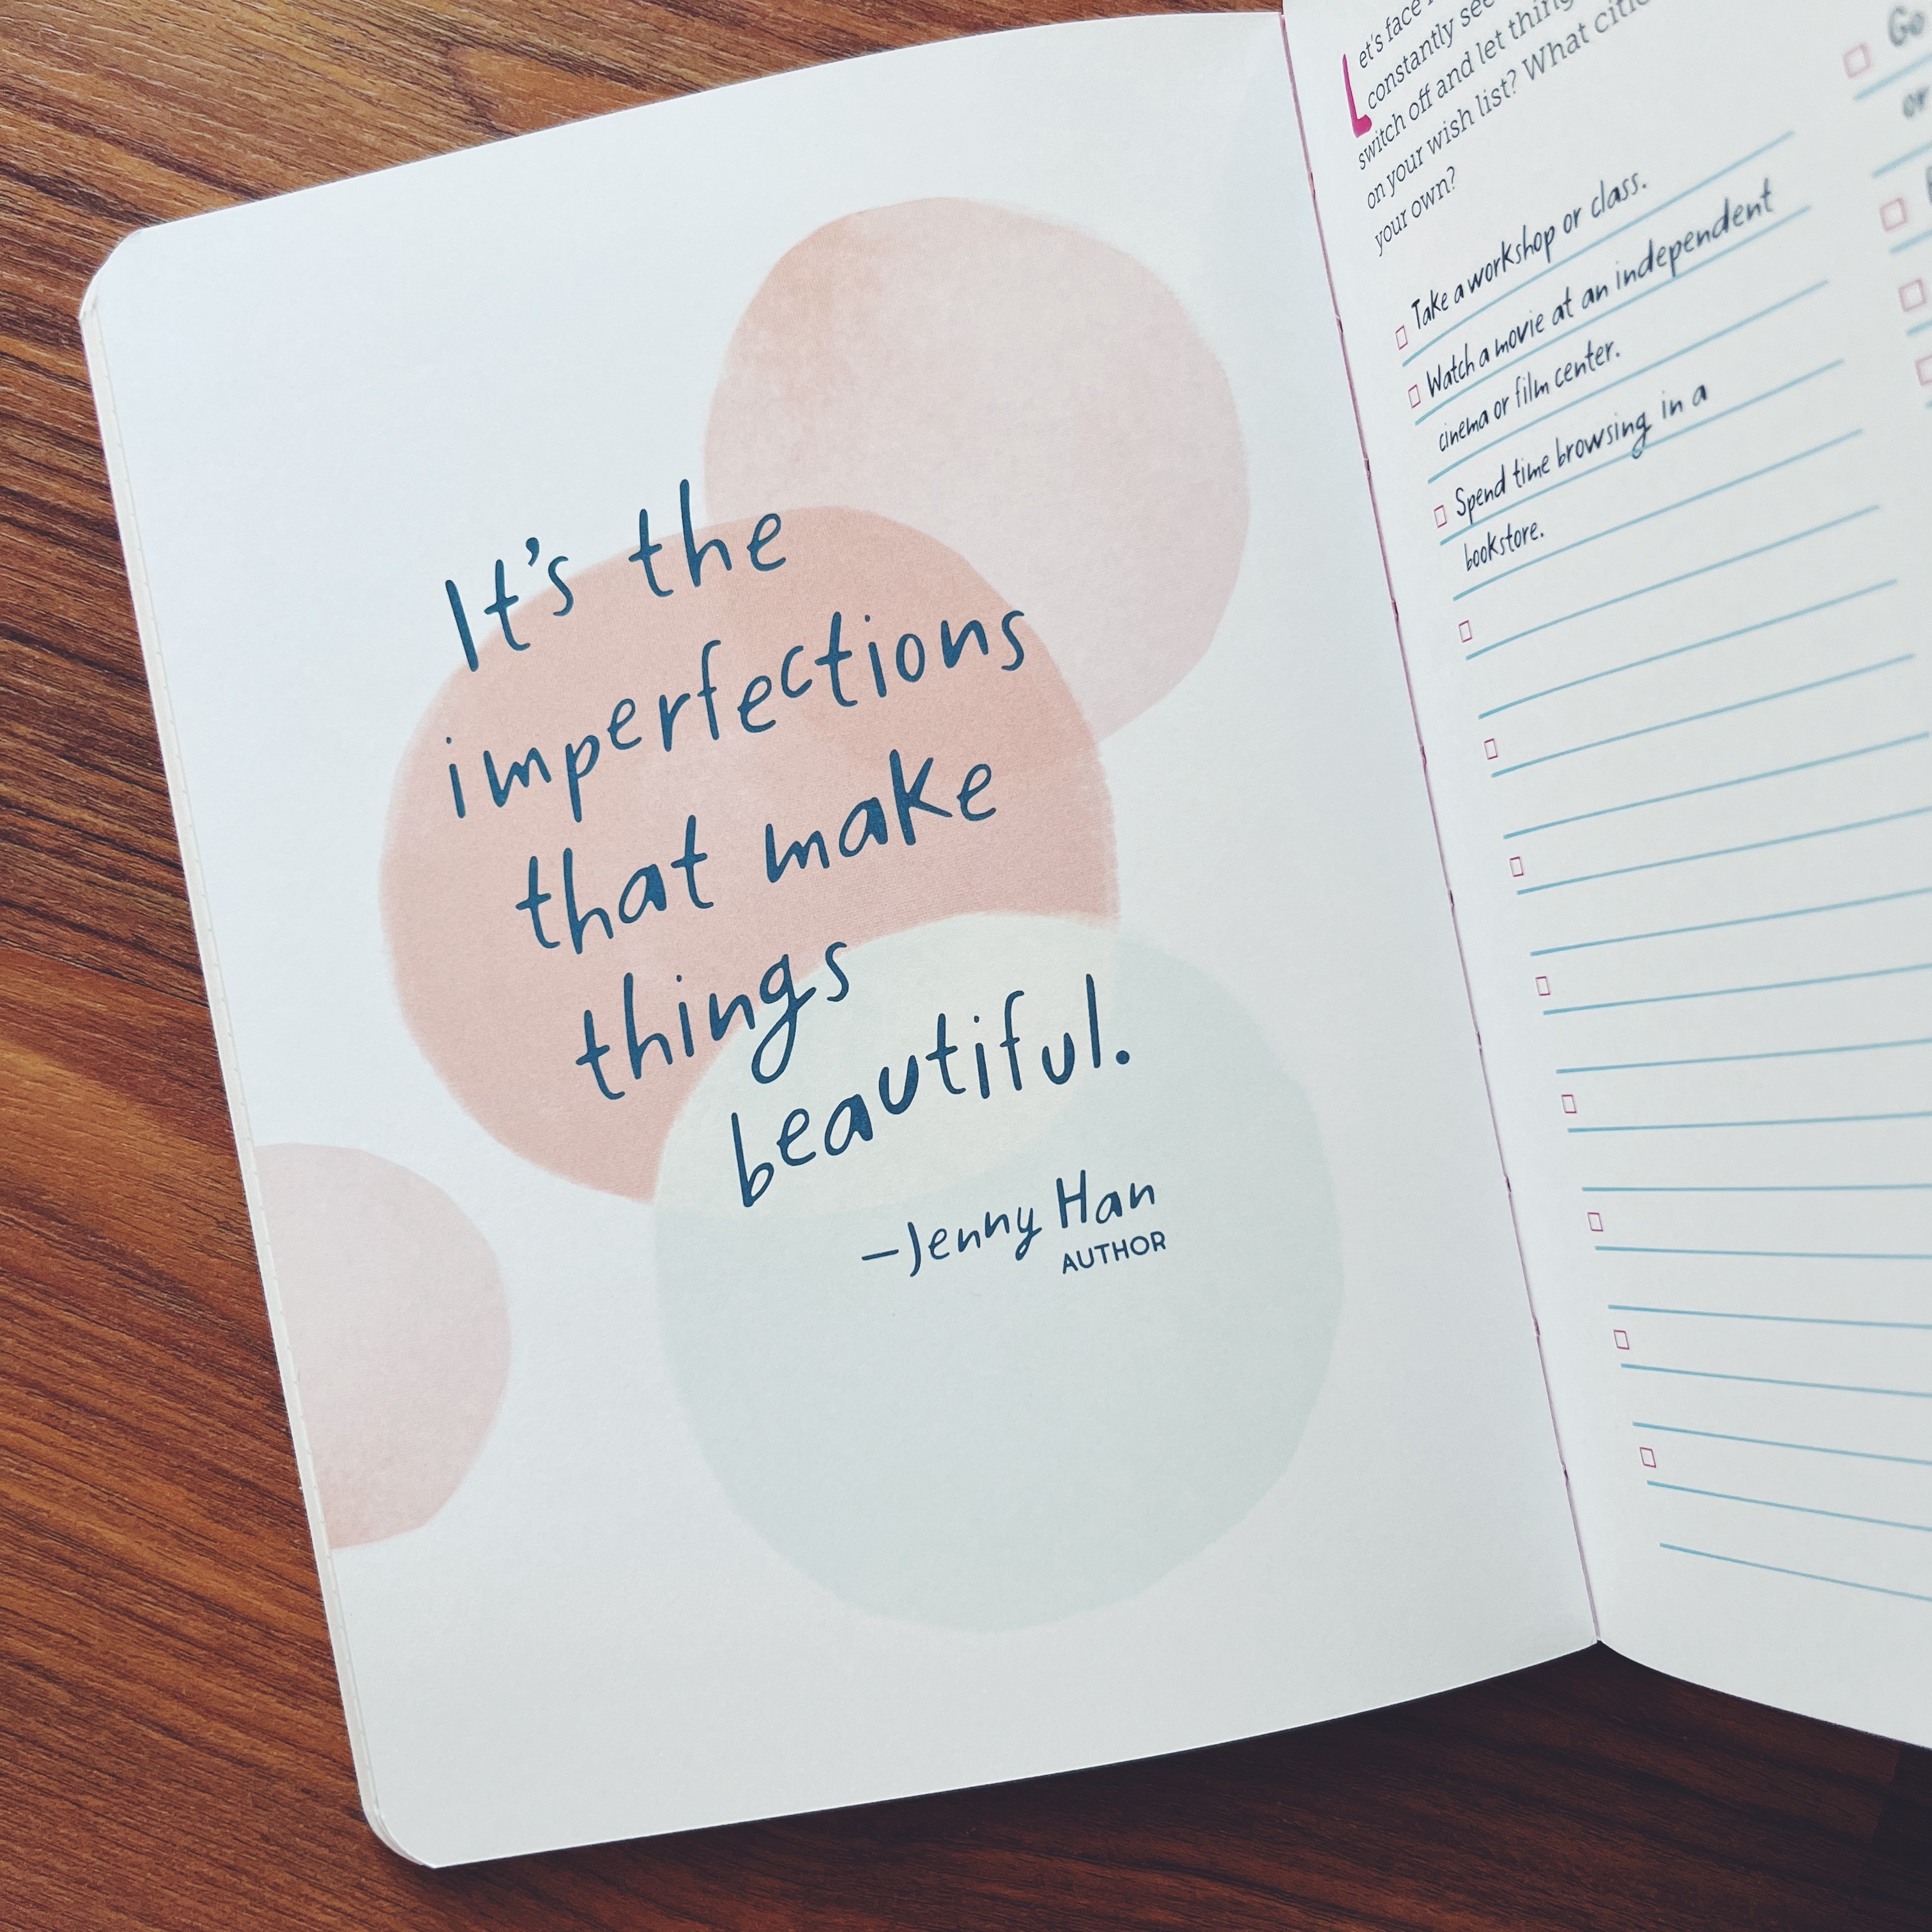 It's the
imperfections
that make
things
beautiful.
—Jenny Han
AUTHOR
Let's face
constantly see
switch off and let
on your wish list? What
your own?
Take a workshop or class.
Watch a movie at an independent
cinema or film center.
Spend time browsing in a
bookstore.
Go
or